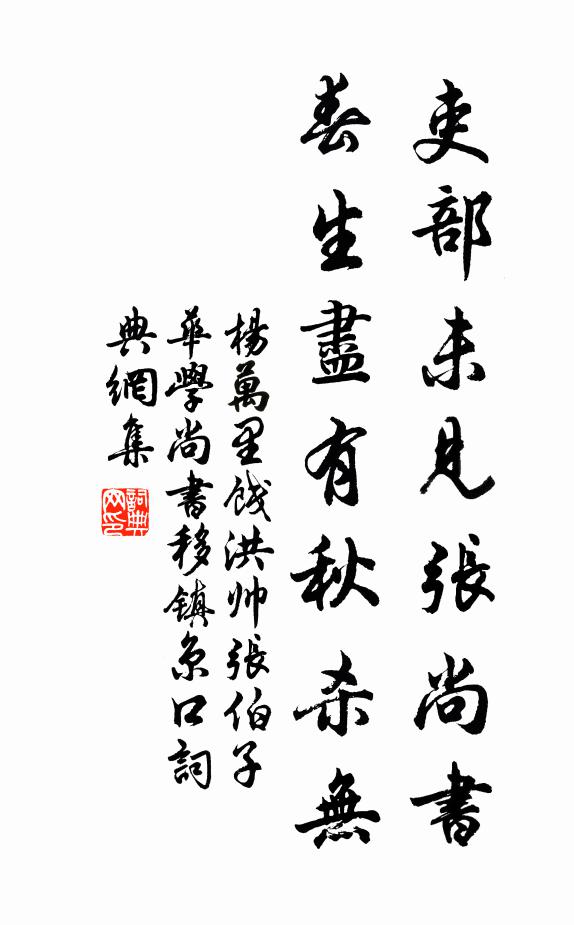 吏部未見張尚書
春生盡有秋杀無
楊萬里餞洪帅張伯子
華學尚書移鎮京口詞
典網集
詞典網印